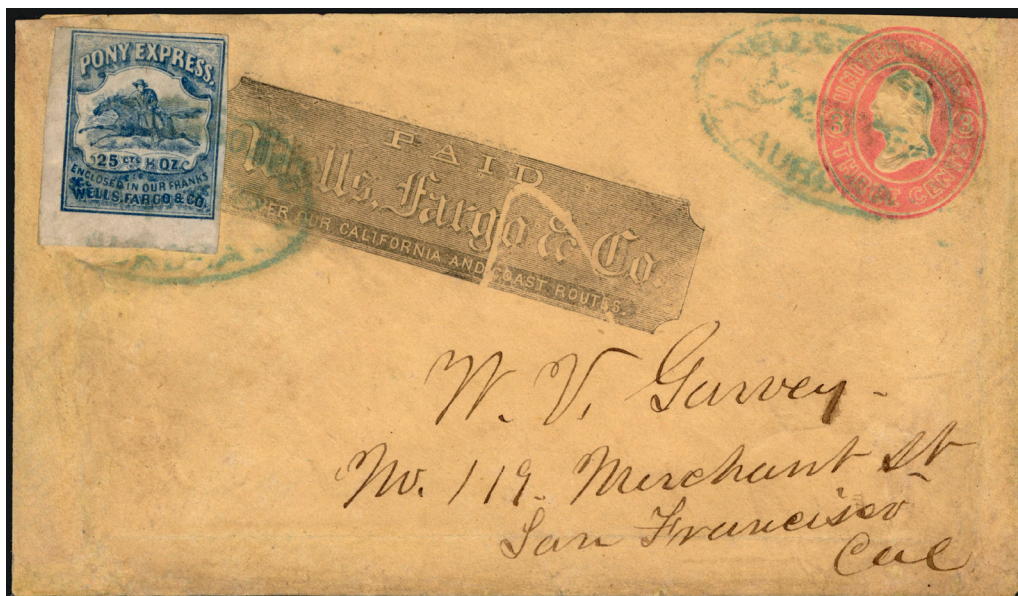 PONY EXPRESS.
25 CTS ½ OZ.
ENCLOSED IN OUR FRANKS
WELLS, FARGO & CO.
PAID
Wells, Fargo & Co.
OVER OUR CALIFORNIA AND COAST ROUTES.
WELLS
UNITED STATES
3 3
THREE CENTS
W. V. Garvey
No. 119. Merchant St
San Francisco
Cal